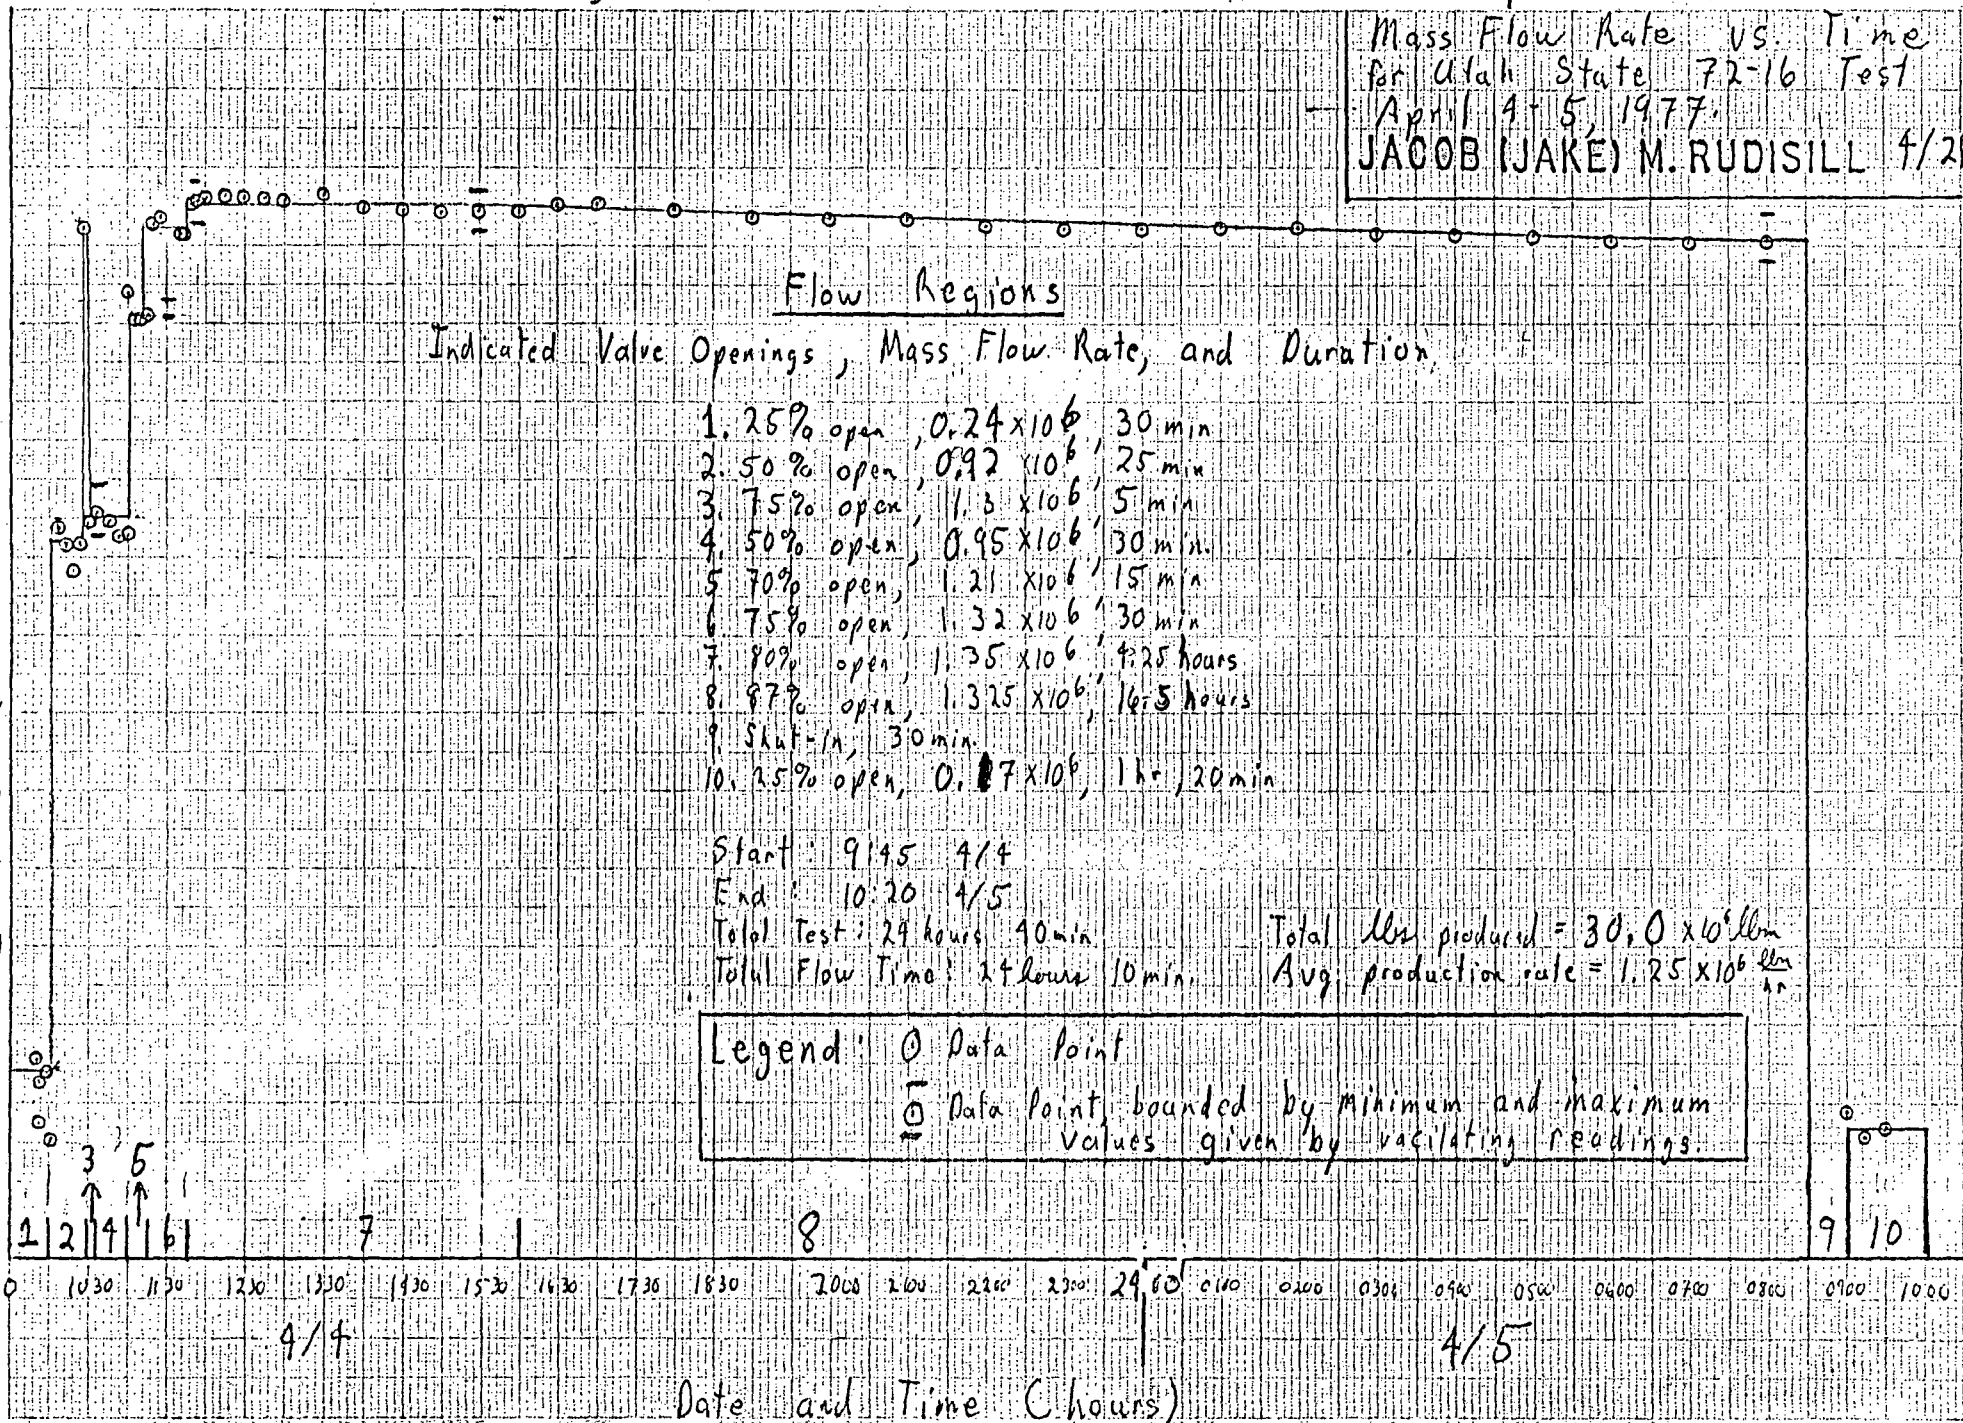 Mass Flow Rate vs. Time
for Utah State 72-16 Test
April 4-5, 1977.
JACOB (JAKE) M. RUDISILL 4/2
Flow Regions
Indicated Valve Openings, Mass Flow Rate, and Duration.
1. 25% open, 0.24 x10^6, 30 min
2. 50% open, 0.92 x10^6, 25 min
3. 75% open, 1.3 x10^6, 5 min
4. 50% open, 0.95 x10^6, 30 min.
5 70% open, 1.21 x10^6, 15 min
6. 75% open, 1.32 x10^6, 30 min
7. 80% open, 1.35 x10^6, 4.25 hours
8. 87% open, 1.325 x10^6, 16.5 hours
9. Shut-in, 30 min.
10. 25% open, 0.17 x10^6, 1 hr, 20 min
Start: 9:45 4/4
End: 10:20 4/5
Total Test: 24 hours 40 min
Total Flow Time: 24 hours 10 min.
Total lbs produced = 30.0 x10^6 lbm
Avg. production rate = 1.25 x10^6 lbm/hr
Legend: ⊙ Data Point
⊙ Data Point, bounded by minimum and maximum
values given by vacilating readings.
3 5
1 2 4 6 7 8 9 10
0 1030 1130 1230 1330 1430 1530 1630 1730 1830 2000 2100 2200 2300 24 00 0100 0200 0300 0400 0500 0600 0700 0800 0900 1000
4/4 4/5
Date and Time (hours)